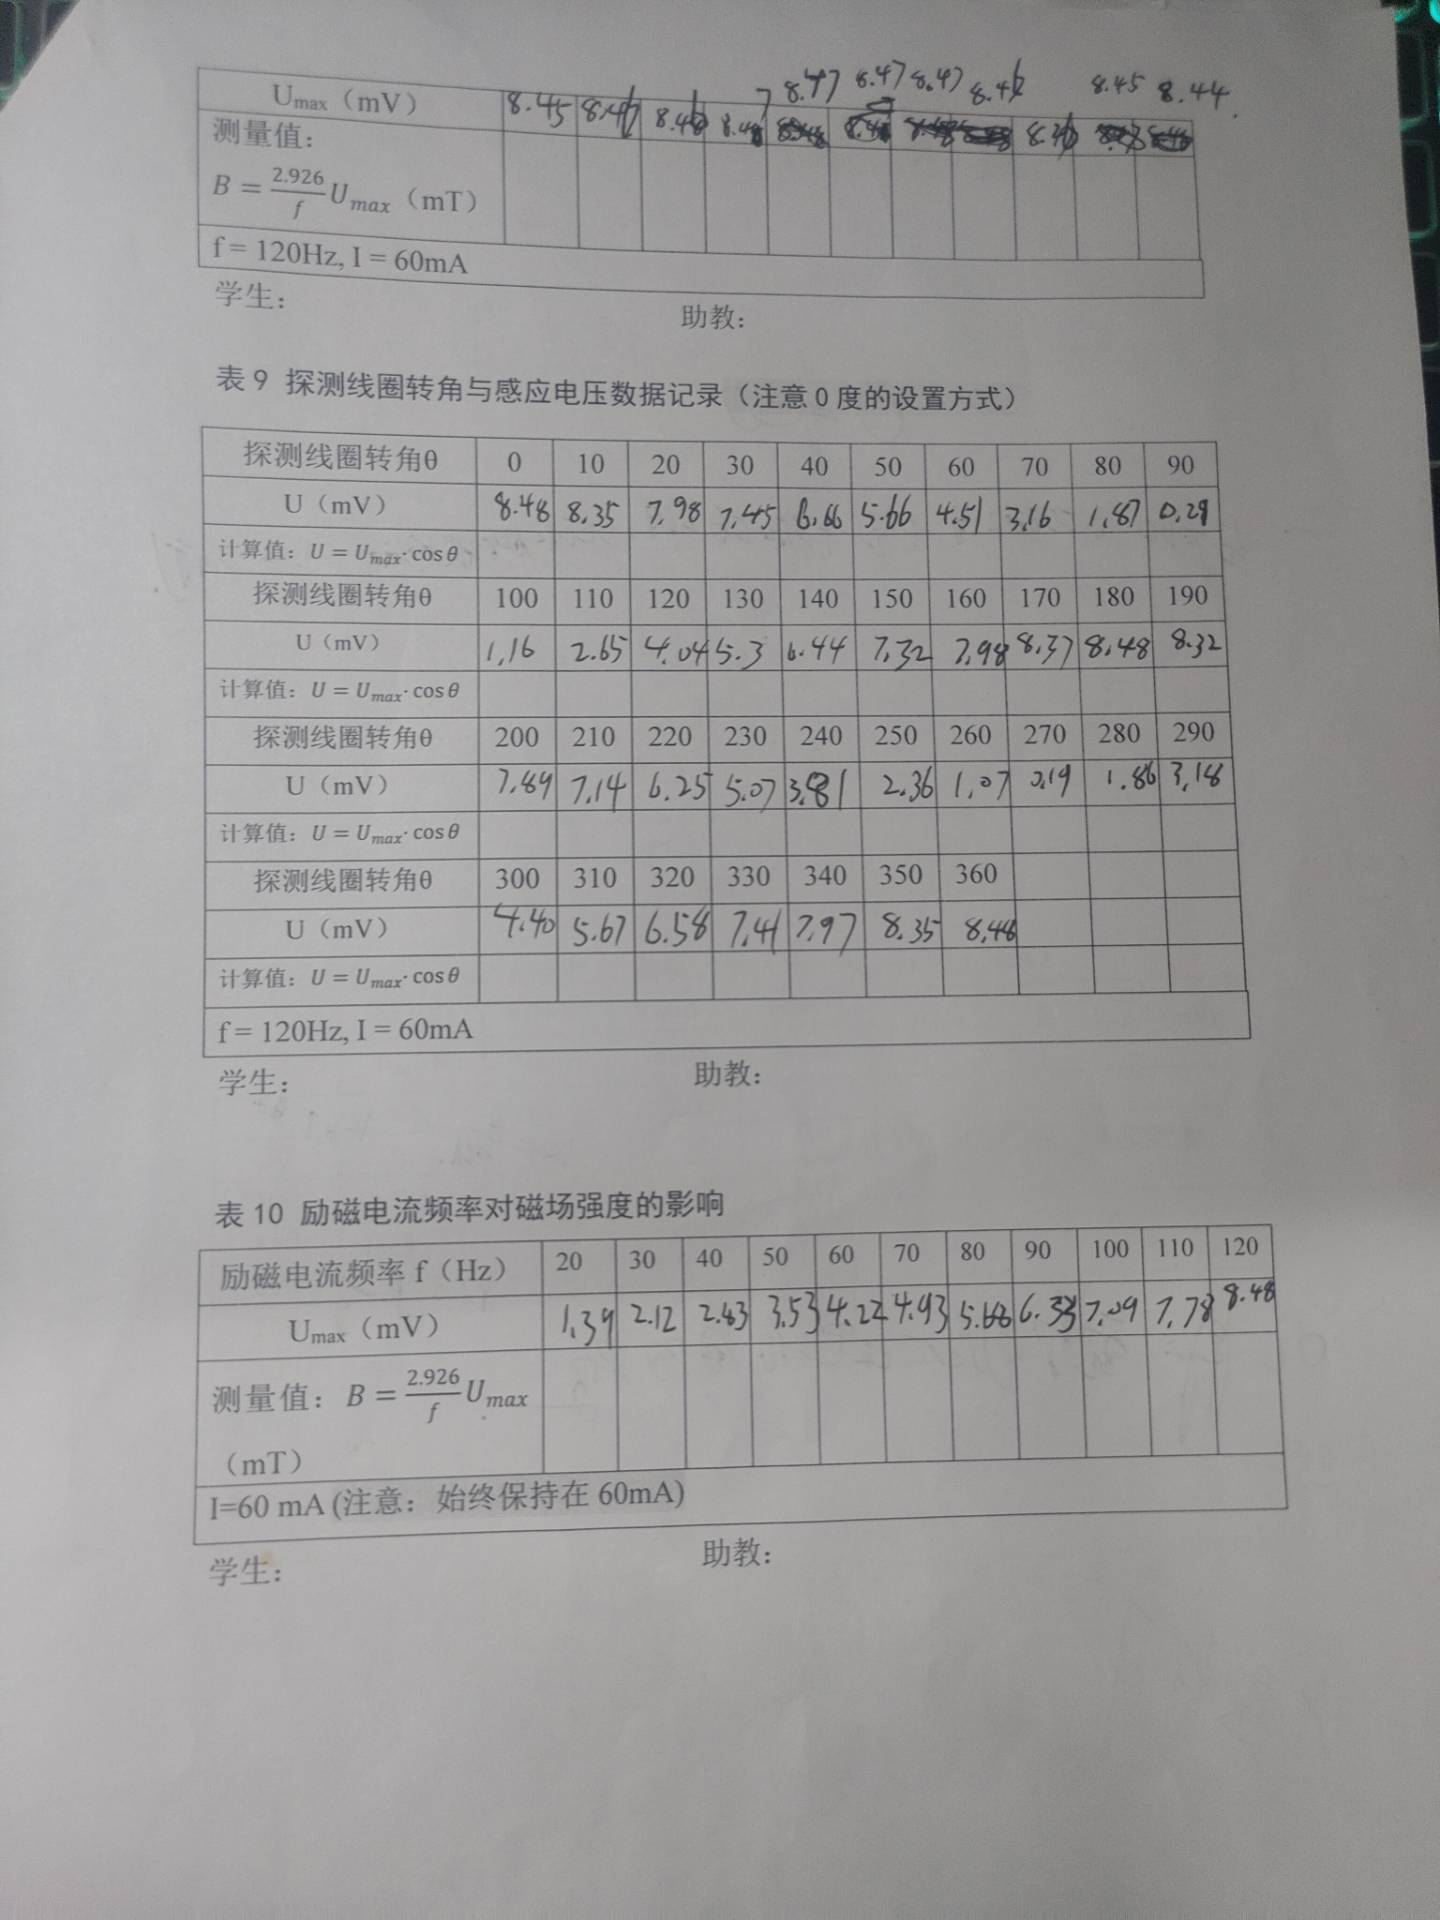 8.47 8.47 8.47 8.46 8.45 8.44
U_max（mV） 8.45 8.46 8.46 8.47 8.46
测量值：
B = 2.926/f U_max（mT）
f = 120Hz, I = 60mA
学生： 助教：
表 9 探测线圈转角与感应电压数据记录（注意 0 度的设置方式）
探测线圈转角θ 0 10 20 30 40 50 60 70 80 90
U（mV） 8.48 8.35 7.98 7.45 6.66 5.66 4.51 3.16 1.87 0.29
计算值：U = U_max·cosθ
探测线圈转角θ 100 110 120 130 140 150 160 170 180 190
U（mV） 1.16 2.65 4.04 5.3 6.44 7.32 7.98 8.37 8.48 8.32
计算值：U = U_max·cosθ
探测线圈转角θ 200 210 220 230 240 250 260 270 280 290
U（mV） 7.89 7.14 6.25 5.07 3.81 2.36 1.07 0.19 1.86 3.18
计算值：U = U_max·cosθ
探测线圈转角θ 300 310 320 330 340 350 360
U（mV） 4.40 5.67 6.58 7.41 7.97 8.35 8.48
计算值：U = U_max·cosθ
f = 120Hz, I = 60mA
学生： 助教：
表 10 励磁电流频率对磁场强度的影响
励磁电流频率 f（Hz） 20 30 40 50 60 70 80 90 100 110 120
U_max（mV） 1.39 2.12 2.83 3.53 4.22 4.93 5.68 6.33 7.09 7.78 8.48
测量值：B = 2.926/f U_max
（mT）
I=60 mA (注意：始终保持在 60mA)
学生： 助教：